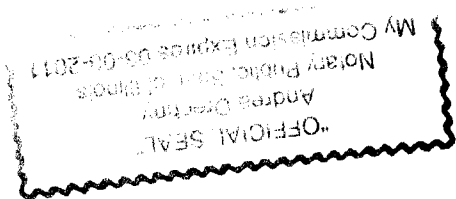 "OFFICIAL SEAL"
Andrea
Notary Public, State of Illinois
My Commission Expires 03-06-2011